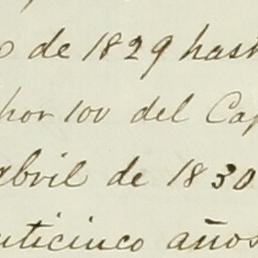 o de 1829 hast
por 100 del Cap
abril de 1830
nticinco años